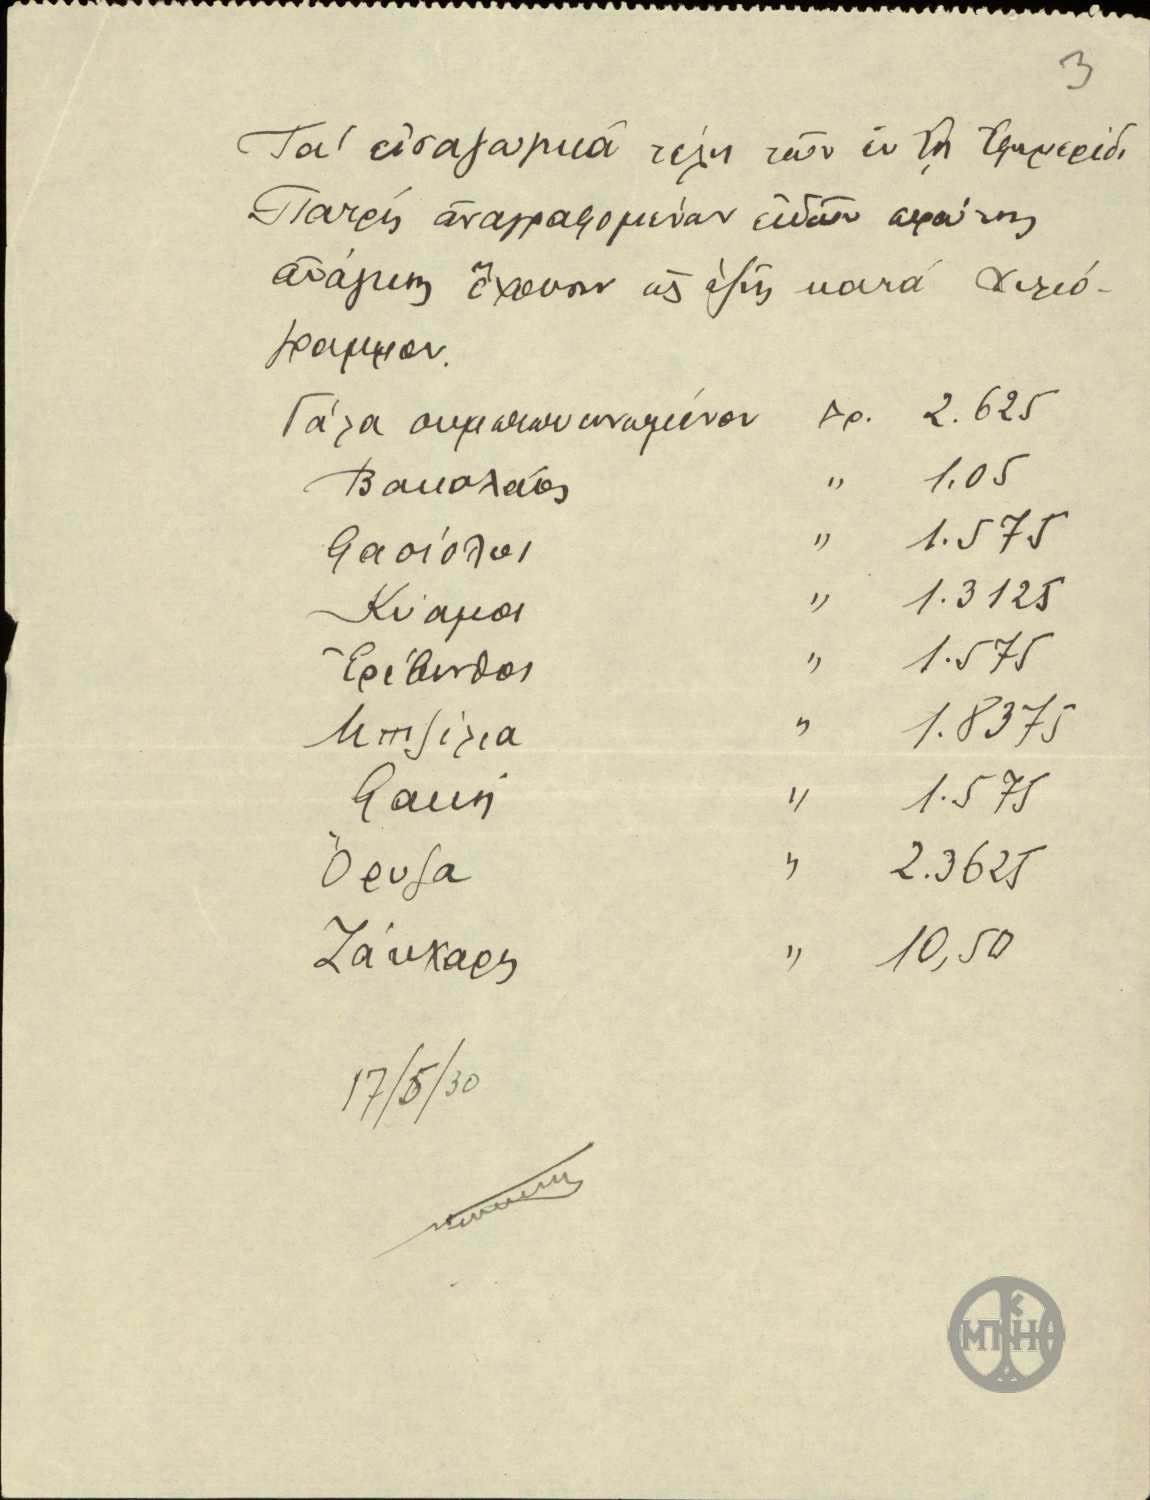 3
Τα' εἰσαγωγικά τέλη τῶν ἐν τῇ Ἐφημερίδι
Πατρίς ἀναγραφομένων εἰδῶν πρώτης
ἀνάγκης ἔχουσιν ὡς ἑξῆς κατά χιλιό-
γραμμον.
Γάλα συμπεπυκνωμένον Δρ. 2.625
Βακαλάος " 1.05
Φασίολοι " 1.575
Κύαμοι " 1.3125
Ἐρέβινθοι " 1.575
Μπιζέλια " 1.8375
Φακή " 1.575
Ὄρυζα " 2.3625
Ζάκχαρις " 10,50
17/5/30
ΜΠΚΗ